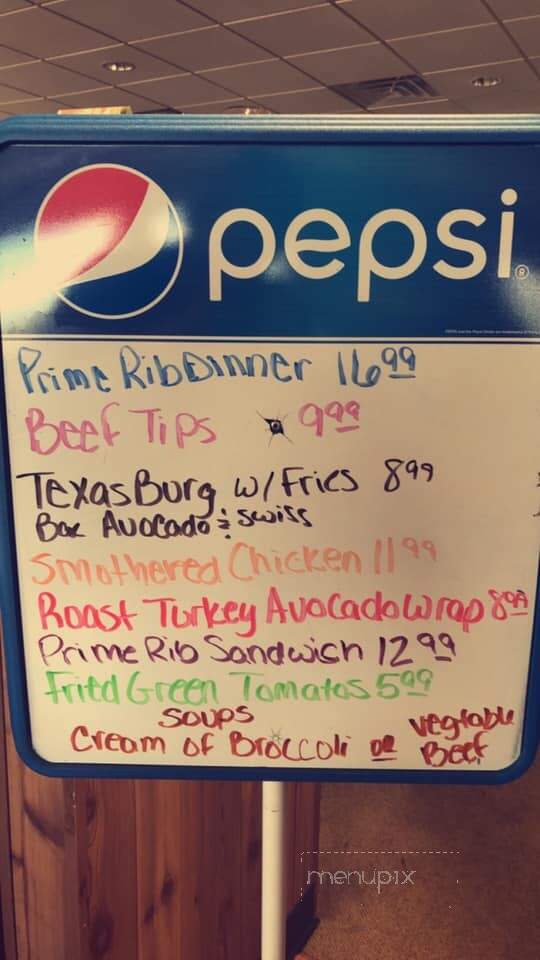 pepsi
Prime Rib Dinner 16 99
Beef Tips 9 99
Texas Burg w/ Fries 8 99
Bac Avocado & Swiss
Smothered Chicken 11 99
Roast Turkey Avocado Wrap 8 99
Prime Rib Sandwich 12 99
Fried Green Tomatos 5 99
Soups
Cream of Broccoli or vegtable Beef
menupix